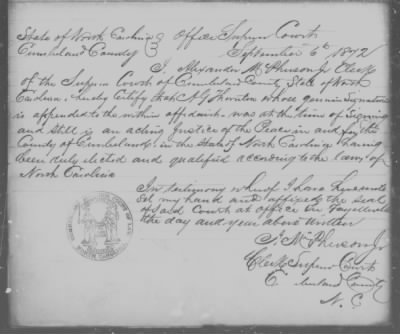 State of North Carolina
Cumberland County
Office Superior Court
September 6th 1872
I. Alexander McPherson Jr Clerk
of the Superior Court of Cumberland County State of North
Carolina, hereby Certify that A G Thornton whose genuine Signature
is appended to the within affidavit was at the time of Signing
and still is an acting Justice of the Peace in and for the
County of Cumberland in the State of North Carolina having
been duly elected and qualified according to the laws of
North Carolina
In testimony whereof I have hereunto
set my hand and affixed the seal
of said Court at office in Fayetteville
the day and year above written
McPherson Jr
Clerk Superior Court
Cumberland County
N. C.